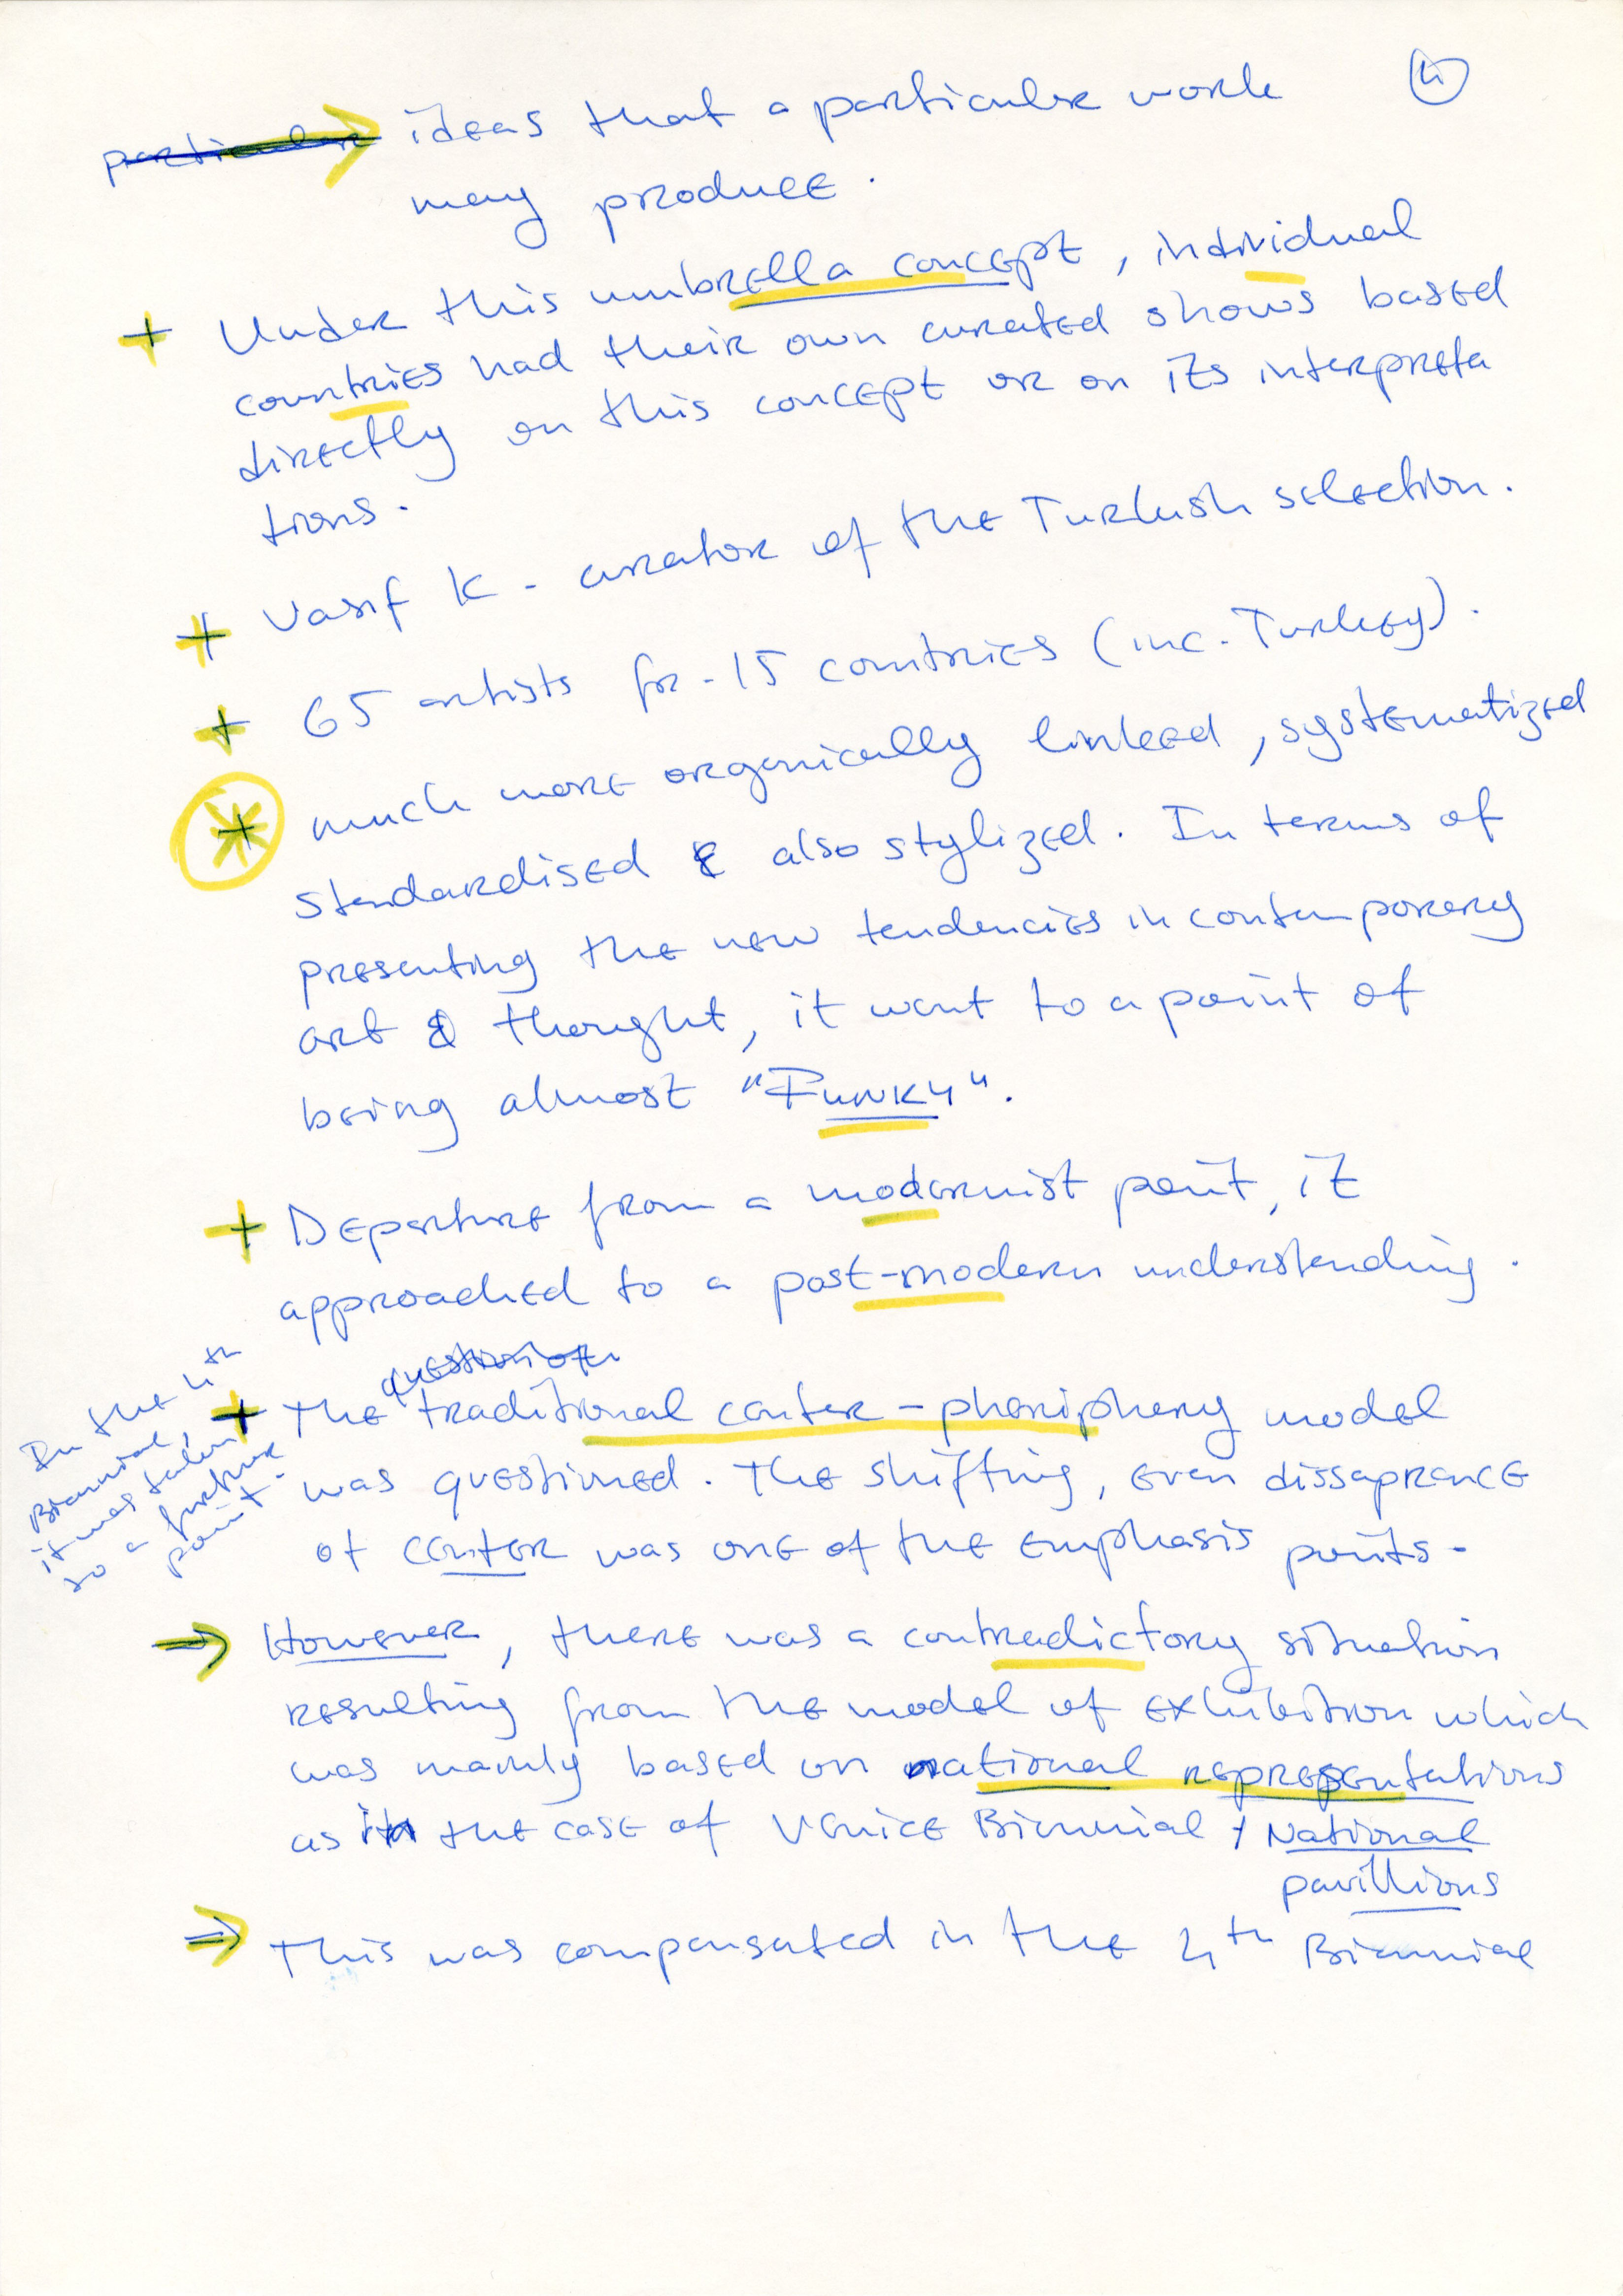 4
particular ideas that a particular work
may produce.
+ Under this umbrella concept, individual
countries had their own curated shows based
directly on this concept or on its interpreta
tions.
+ Vasıf K - curator of the Turkish selection.
+ 65 artists fr. 15 countries (inc. Turkey).
+ much more organically linked, systematized
standardised & also stylized. In terms of
presenting the new tendencies in contemporary
art & thought, it went to a point of
being almost "Funky".
+ Departure from a modernist point, it
approached to a post-modern understanding.
question of
+ The traditional center-pheriphery model
was questioned. The shifting, even dissaprance
of center was one of the emphasis points.
In the 4th
Biennial,
it was taken
to a further
point.
→ However, there was a contradictory situation
resulting from the model of exhibition which
was mainly based on national representations
as in the case of Venice Biennial + National
pavillions
⇒ This was compensated in the 4th Biennial